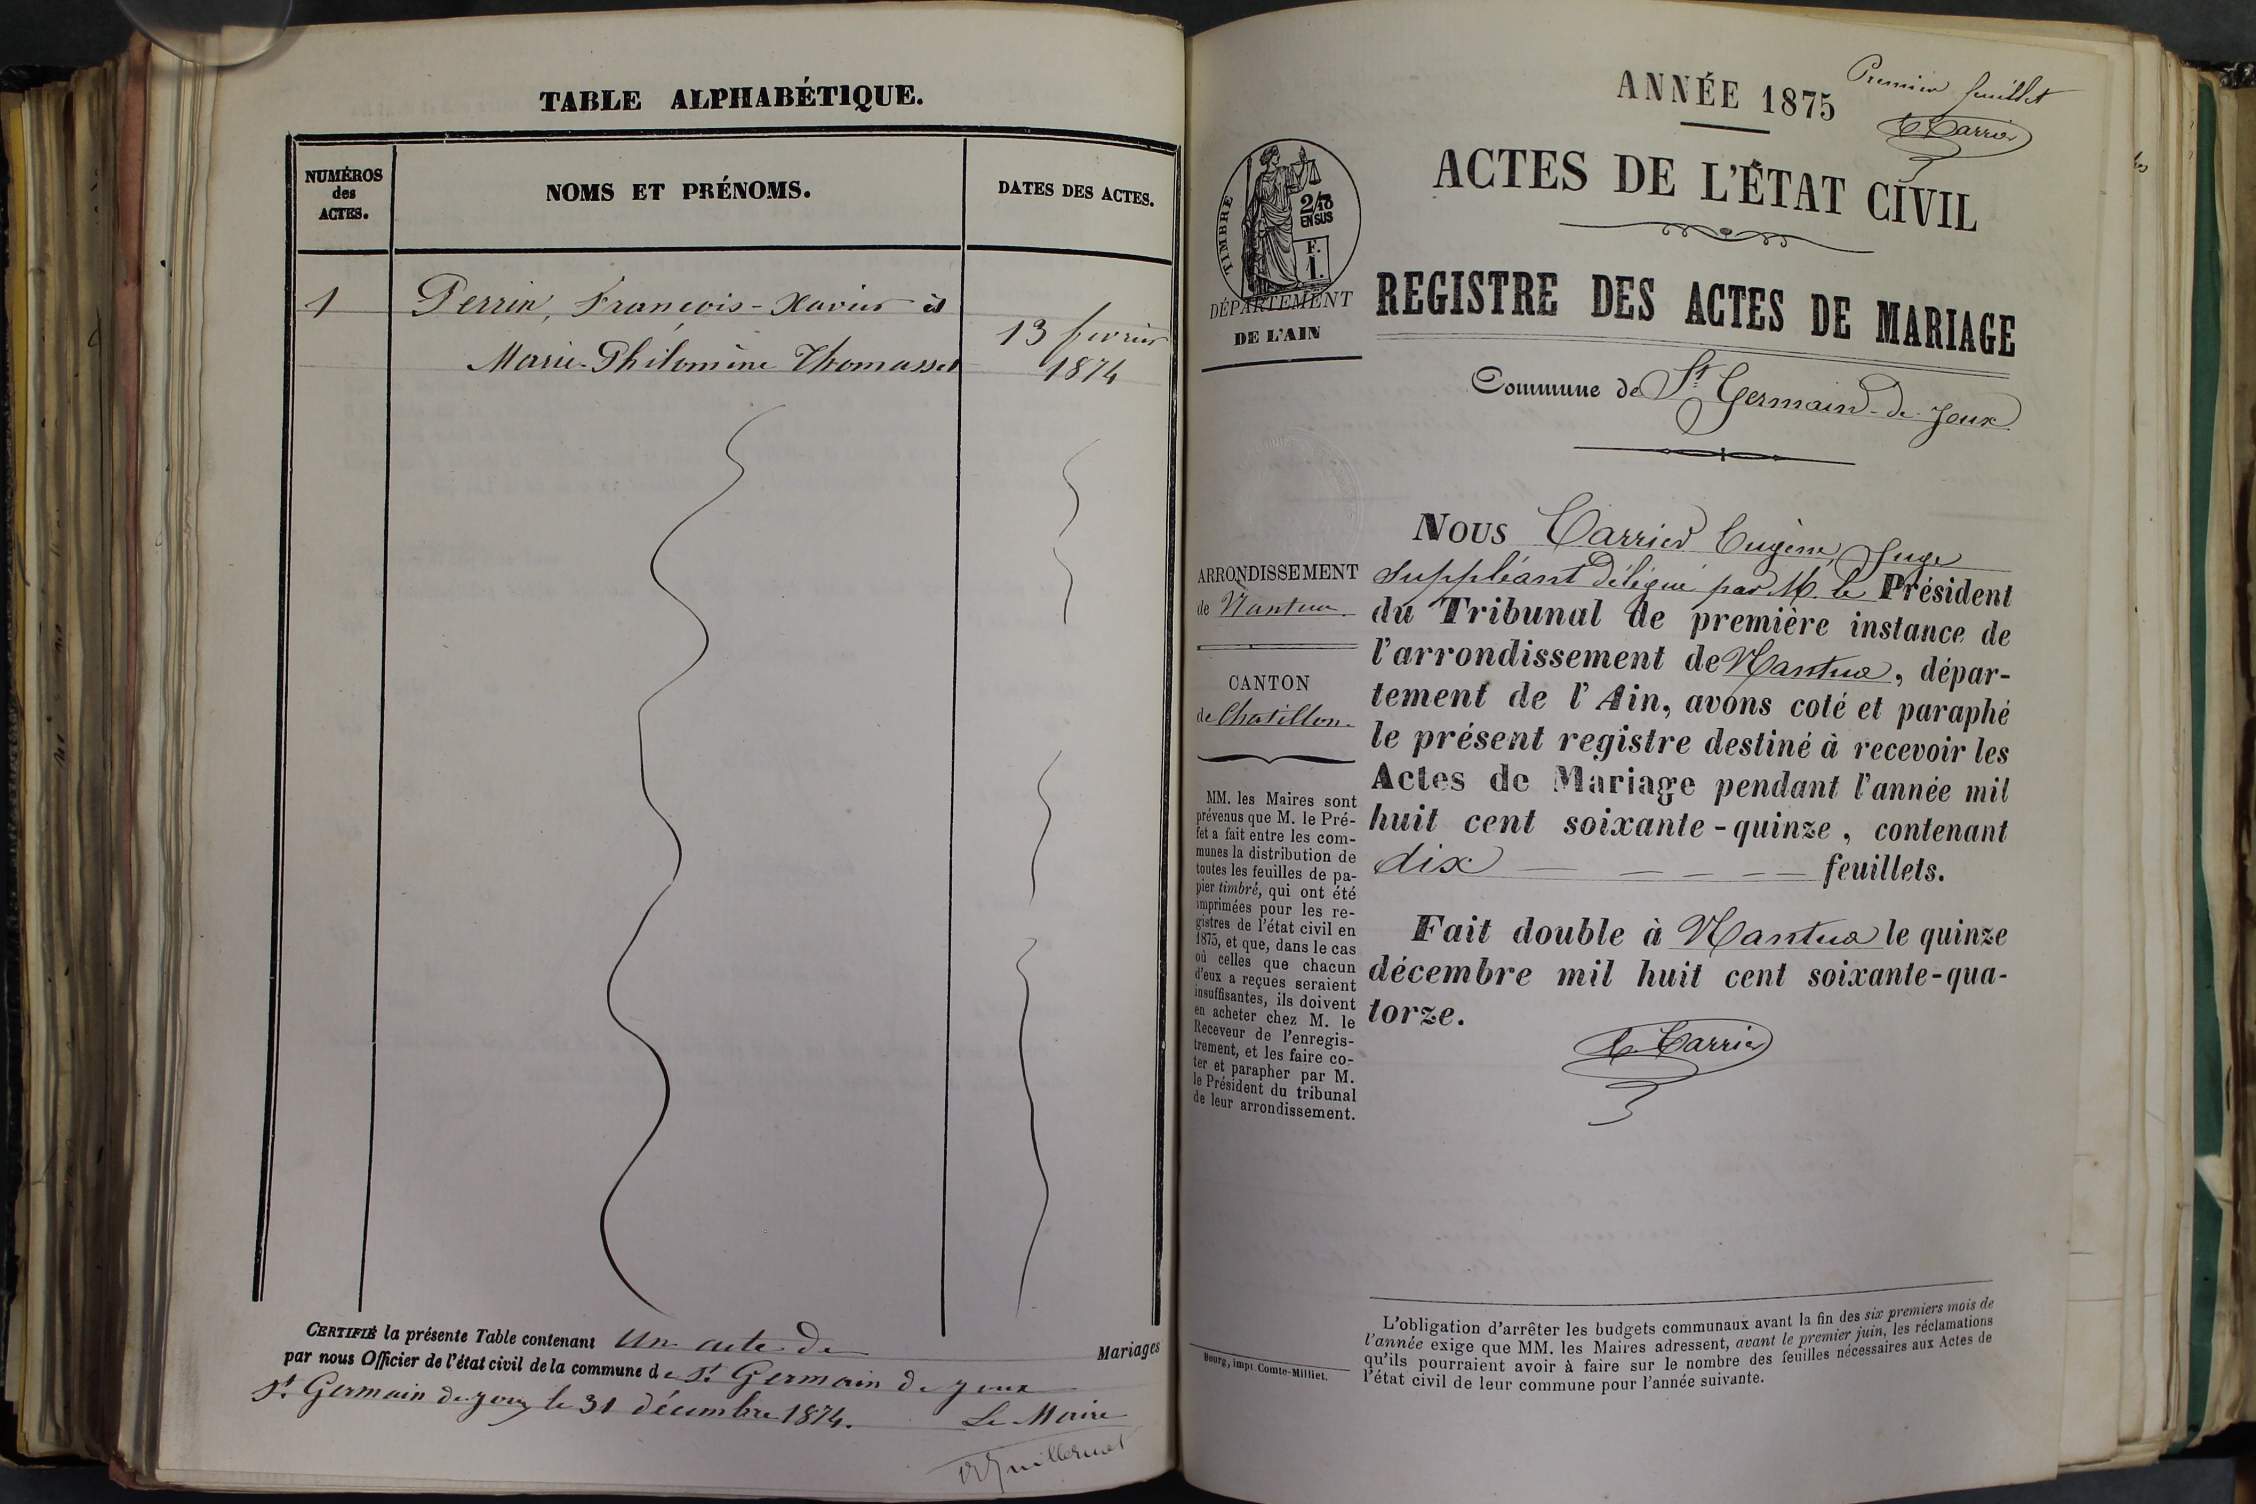 TABLE ALPHABÉTIQUE.
NUMÉROS
des
ACTES.
NOMS ET PRÉNOMS.
DATES DES ACTES.
1
Perrin, François-Xavier et
13 février
Marie-Philomène Thomasset
1874
CERTIFIÉ la présente Table contenant un acte de Mariages
par nous Officier de l'état civil de la commune de St Germain de Joux
St Germain de Joux le 31 décembre 1874.
Le Maire
Premier feuillet
E. Carrier
ANNÉE 1875
ACTES DE L'ÉTAT CIVIL
TIMBRE
2/10
EN SUS
F.
1.
DÉPARTEMENT
DE L'AIN
REGISTRE DES ACTES DE MARIAGE
Commune de St Germain-de-Joux
ARRONDISSEMENT
de Nantua
CANTON
de Chatillon
MM. les Maires sont
prévenus que M. le Pré-
fet a fait entre les com-
munes la distribution de
toutes les feuilles de pa-
pier timbré, qui ont été
imprimées pour les re-
gistres de l'état civil en
1875, et que, dans le cas
où celles que chacun
d'eux a reçues seraient
insuffisantes, ils doivent
en acheter chez M. le
Receveur de l'enregis-
trement, et les faire co-
ter et parapher par M.
le Président du tribunal
de leur arrondissement.
NOUS Carrier Eugène, Juge
suppléant délégué par M. le Président
du Tribunal de première instance de
l'arrondissement de Nantua, dépar-
tement de l'Ain, avons coté et paraphé
le présent registre destiné à recevoir les
Actes de Mariage pendant l'année mil
huit cent soixante-quinze, contenant
dix — — — — — feuillets.
Fait double à Nantua le quinze
décembre mil huit cent soixante-qua-
torze.
E. Carrier
Bourg, impr. Comte-Milliet.
L'obligation d'arrêter les budgets communaux avant la fin des six premiers mois de
l'année exige que MM. les Maires adressent, avant le premier juin, les réclamations
qu'ils pourraient avoir à faire sur le nombre des feuilles nécessaires aux Actes de
l'état civil de leur commune pour l'année suivante.